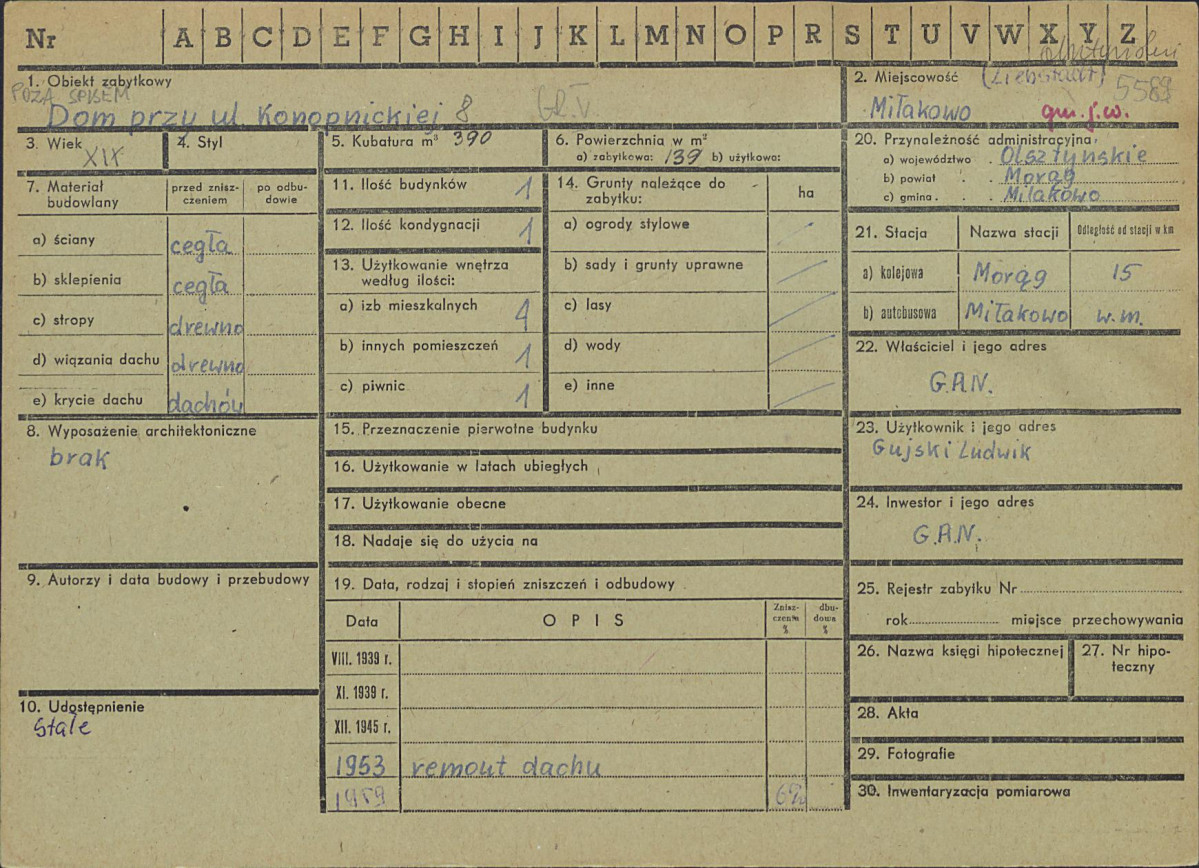 Nr A B C D E F G H I J K L M N O P R S T U V W X Y Z
1. Obiekt zabytkowy
POZA SPISEM
Dom przy ul. Konopnickiej 8
2. Miejscowość (Liebstadt) 5589
Miłakowo gm. j.w.
3. Wiek XIX
4. Styl
5. Kubatura m³ 390
6. Powierzchnia w m²
a) zabytkowa: 139 b) użytkowa:
7. Materiał budowlany
przed znisz-
czeniem
po odbu-
dowie
a) ściany cegła
b) sklepienia cegła
c) stropy drewno
d) wiązania dachu drewno
e) krycie dachu dachów
8. Wyposażenie architektoniczne
brak
9. Autorzy i data budowy i przebudowy
10. Udostępnienie
Stałe
11. Ilość budynków 1
12. Ilość kondygnacji 1
13. Użytkowanie wnętrza
według ilości:
a) izb mieszkalnych 4
b) innych pomieszczeń 1
c) piwnic 1
14. Grunty należące do
zabytku:
ha
a) ogrody stylowe
b) sady i grunty uprawne
c) lasy
d) wody
e) inne
15. Przeznaczenie pierwotne budynku
16. Użytkowanie w latach ubiegłych
17. Użytkowanie obecne
18. Nadaje się do użycia na
19. Data, rodzaj i stopień zniszczeń i odbudowy
Data OPIS
Znisz-
czenia
%
dbu-
dowa
%
VIII. 1939 r.
XI. 1939 r.
XII. 1945 r.
1953 remont dachu
1959 6%
20. Przynależność administracyjna
a) województwo Olsztyńskie
b) powiat Morąg
c) gmina Miłakowo
21. Stacja Nazwa stacji Odległość od stacji w km
a) kolejowa Morąg 15
b) autobusowa Miłakowo w.m.
22. Właściciel i jego adres
G.R.N.
23. Użytkownik i jego adres
Gujski Ludwik
24. Inwestor i jego adres
G.R.N.
25. Rejestr zabytku Nr
rok miejsce przechowywania
26. Nazwa księgi hipotecznej
27. Nr hipo-
teczny
28. Akta
29. Fotografie
30. Inwentaryzacja pomiarowa